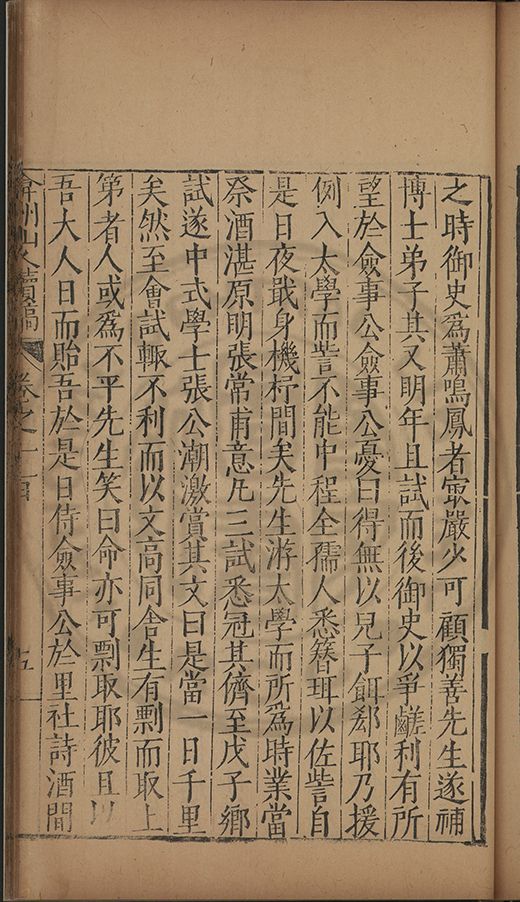 之時御史爲蕭鳴鳳者寂嚴少可顧獨善先生遂補
博士弟子其又明年且試而後御史以爭鹺利有所
望於僉事公僉事公憂曰得無以兒子餌郄耶乃援
例入太學而訾不能中程全孺人悉簪珥以佐訾自
是日夜戢身機杼間矣先生游太學而所爲時業當
祭酒湛原明張常甫意凢三試悉冠其儕至戊子鄉
試遂中式學士張公潮激賞其文曰是當一日千里
矣然至會試輒不利而以文高同舎生有剽而取上
第者人或爲不平先生笑曰命亦可剽取耶彼且以
吾大人日而貽吾於是日侍僉事公於里社詩酒間
弇州山人續稿 卷之一百 五